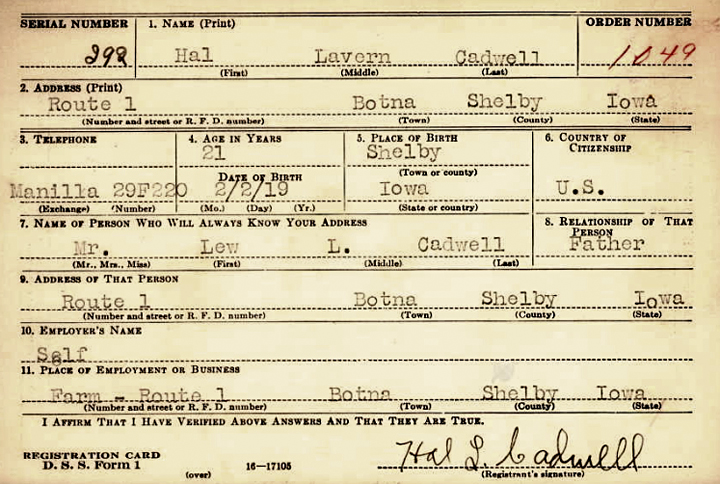 SERIAL NUMBER 1. NAME (Print) ORDER NUMBER
292 Hal Lavern Cadwell 1049
(First) (Middle) (Last)
2. ADDRESS (Print)
Route 1 Botna Shelby Iowa
(Number and street or R. F. D. number) (Town) (County) (State)
3. TELEPHONE 4. AGE IN YEARS 5. PLACE OF BIRTH 6. COUNTRY OF CITIZENSHIP
21 Shelby
DATE OF BIRTH (Town or county)
Manilla 29F220 2/2/19 Iowa U.S.
(Exchange) (Number) (Mo.) (Day) (Yr.) (State or country)
7. NAME OF PERSON WHO WILL ALWAYS KNOW YOUR ADDRESS 8. RELATIONSHIP OF THAT PERSON
Mr. Lew L. Cadwell Father
(Mr., Mrs., Miss) (First) (Middle) (Last)
9. ADDRESS OF THAT PERSON
Route 1 Botna Shelby Iowa
(Number and street or R. F. D. number) (Town) (County) (State)
10. EMPLOYER'S NAME
Self
11. PLACE OF EMPLOYMENT OR BUSINESS
Farm - Route 1 Botna Shelby Iowa
(Number and street or R. F. D. number) (Town) (County) (State)
I AFFIRM THAT I HAVE VERIFIED ABOVE ANSWERS AND THAT THEY ARE TRUE.
REGISTRATION CARD
D. S. S. Form 1 (over) 16—17105 Hal L. Cadwell
(Registrant's signature)